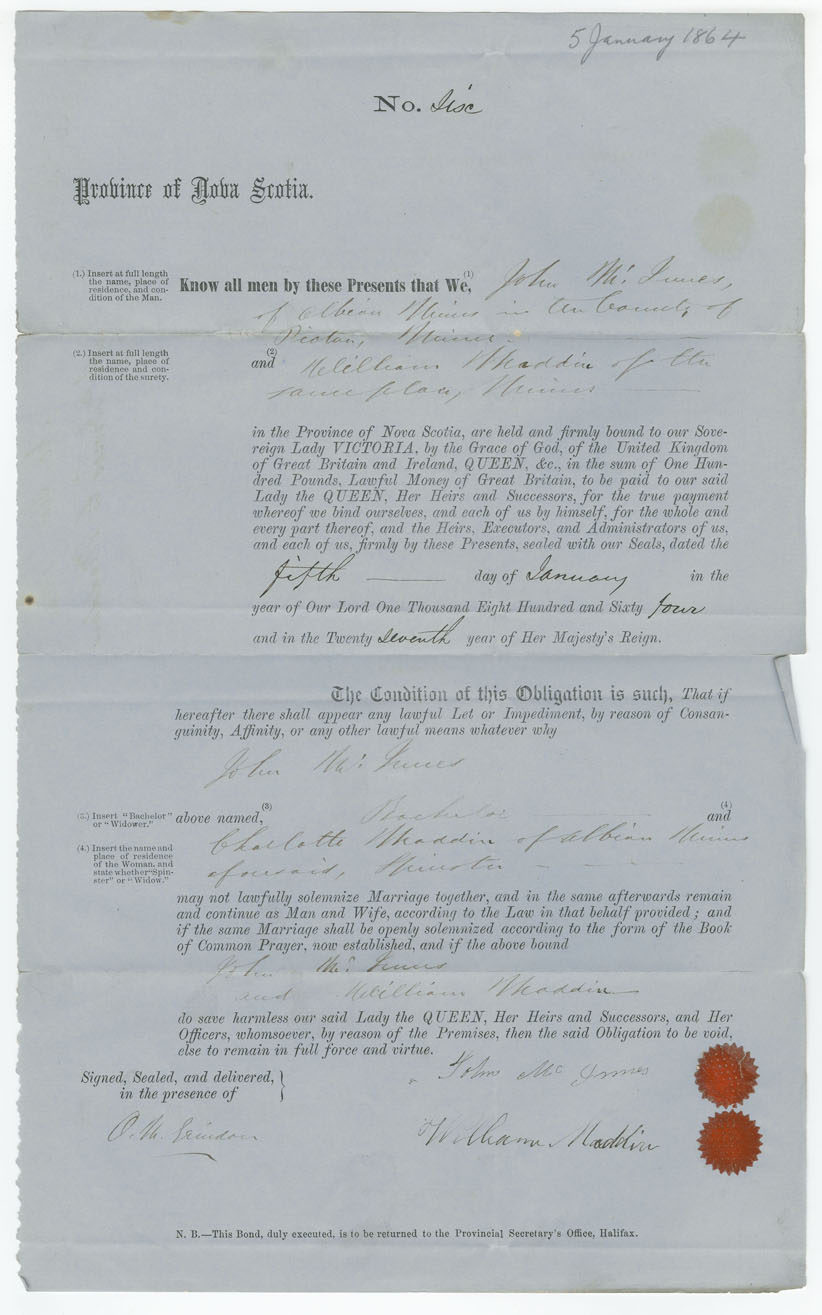 5 January 1864
No.
Province of Nova Scotia.
(1.) Insert at full length
the name, place of
residence, and con-
dition of the Man.
Know all men by these Presents that We,(1) John Mc Innes,
of Albion Mines in the County of
Pictou, Miner.
(2.) Insert at full length
the name, place of
residence and con-
dition of the surety.
and(2) William Maddin of the
same place, Miner
in the Province of Nova Scotia, are held and firmly bound to our Sove-
reign Lady VICTORIA, by the Grace of God, of the United Kingdom
of Great Britain and Ireland, QUEEN, &c., in the sum of One Hun-
dred Pounds, Lawful Money of Great Britain, to be paid to our said
Lady the QUEEN, Her Heirs and Successors, for the true payment
whereof we bind ourselves, and each of us by himself, for the whole and
every part thereof, and the Heirs, Executors, and Administrators of us,
and each of us, firmly by these Presents, sealed with our Seals, dated the
fifth day of January in the
year of Our Lord One Thousand Eight Hundred and Sixty four
and in the Twenty seventh year of Her Majesty's Reign.
The Condition of this Obligation is such, That if
hereafter there shall appear any lawful Let or Impediment, by reason of Consan-
guinity, Affinity, or any other lawful means whatever why
John Mc Innes
(3.) Insert "Bachelor"
or "Widower."
above named,(3) Bachelor (4) and
(4.) Insert the name and
place of residence
of the Woman, and
state whether "Spin-
ster" or "Widow."
Charlotte Maddin of Albion Mines
aforesaid, Spinster
may not lawfully solemnize Marriage together, and in the same afterwards remain
and continue as Man and Wife, according to the Law in that behalf provided; and
if the same Marriage shall be openly solemnized according to the form of the Book
of Common Prayer, now established, and if the above bound
John Mc Innes
and William Maddin
do save harmless our said Lady the QUEEN, Her Heirs and Successors, and Her
Officers, whomsoever, by reason of the Premises, then the said Obligation to be void,
else to remain in full force and virtue.
Signed, Sealed, and delivered,
in the presence of
John Mc Innes
O. M. Grindon
William Maddin
N. B.—This Bond, duly executed, is to be returned to the Provincial Secretary's Office, Halifax.